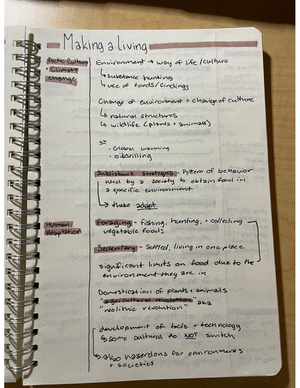 Making a Living
Arctic Culture
+ Climate
Change
Environment → way of life/culture
↳ subsistence hunting
↳ use of foods/findings
Change of environment = change of culture
↳ natural structures
↳ wildlife (plants + animals)
• Global warming
• oildrilling
Subsistence Strategies - Pattern of behavior
used by a society to obtain food in
a specific environment
↳ these adapt
Human
Adaptation
Foraging - fishing, hunting, + collecting
vegetable foods
Sedentary - Settled, living in one place
significant limits on food due to the
environment they are in
Domestication of plants + animals
"agricultural revolution" aka
neolithic revolution"
development of tools + technology
↳ some cultures do NOT switch
↳ also hazardous for environments
+ societies